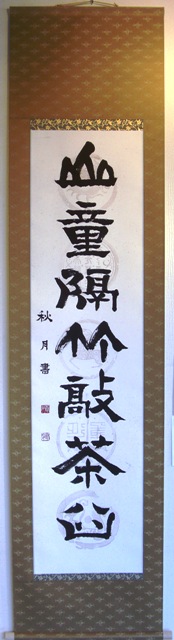 山童隔竹敲茶臼
秋月書